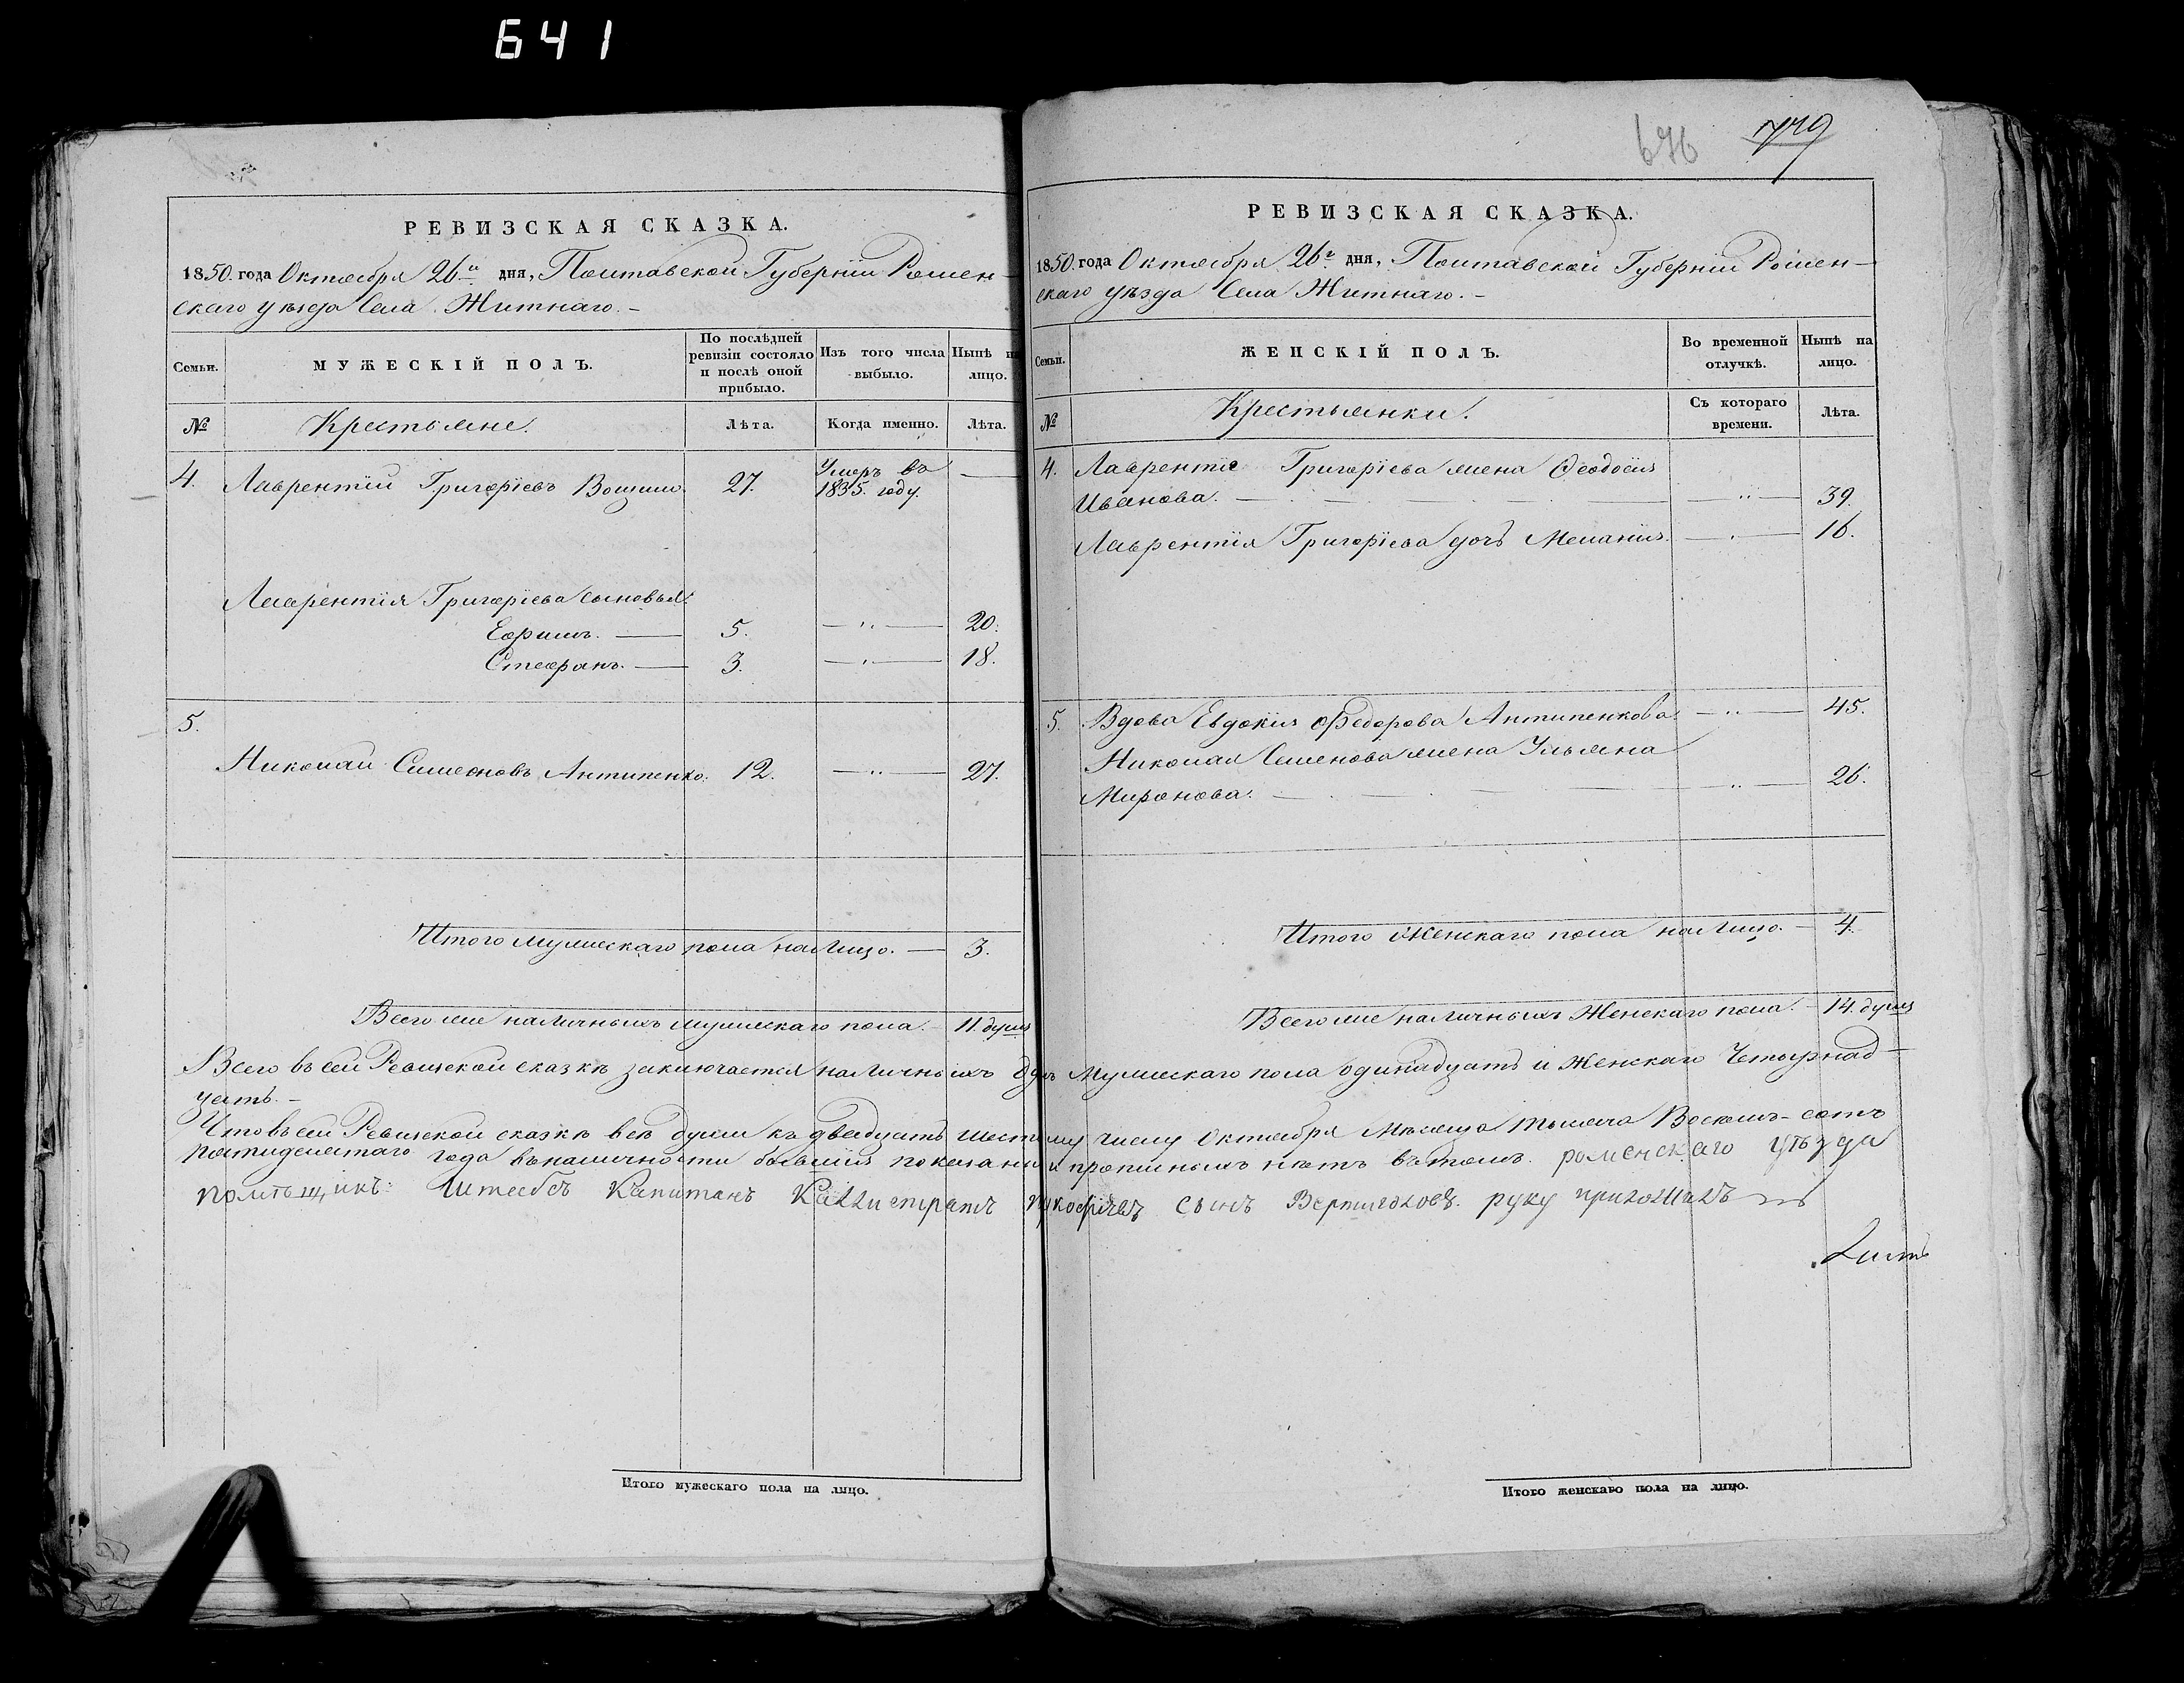 641
РЕВИЗСКАЯ СКАЗКА.
1850. года Октября 26го дня, Полтавской Губерніи Ромен-
скаго уѣзда Села Житнаго. -
Семьи.
МУЖЕСКІЙ ПОЛЪ.
По послѣдней ревизіи состояло и послѣ оной прибыло.
Изъ того числа выбыло.
Нынѣ на лицо.
№
Крестьяне.
Лѣта.
Когда именно.
Лѣта.
4. Лаврентій Григоріевъ 27. Умеръ въ —
1835. году.
Лаврентія Григоріева сыновья:
Ефимъ. — 5. — " — 20.
Стефанъ. — 3. — " — 18.
5.
Николай Симеоновъ Антипенко. 12. — " — 27.
Итого мужескаго пола на Лицо. — 3.
Всего же наличныхъ мужескаго пола. - 11. душъ
РЕВИЗСКАЯ СКАЗКА.
1850. года Октября 26го дня, Полтавской Губерніи Ромен-
скаго уѣзда Села Житнаго. -
Семьи.
ЖЕНСКІЙ ПОЛЪ.
Во временной отлучкѣ.
Нынѣ на лицо.
№
Крестьянки.
Съ котораго времени.
Лѣта.
676 779
4. Лаврентіе Григоріева жена Феодосія
Иванова. — " — 39.
Лаврентія Григоріева дочь Меланія. — " — 16.
5. Вдова Евдокія Федорова Антипенкова. — " — 45.
Николая Семенова жена Ульяна
Миронова. — " — 26.
Итого Женскаго пола на Лицо. - 4.
Всего же наличныхъ Женскаго пола. - 14. душъ
Всего въ сей Ревизской сказкѣ заключается наличныхъ душъ Мужескаго пола одинадцать и Женскаго Четырнад-
цать. -
Что въ сей Ревизской сказкѣ всѣ души къ двадцать шестому числу Октября Мѣсяца тысяча Восемь-сотъ
пятидесятаго года въ наличности бывшія показаны и прописныхъ нѣтъ въ томъ. роменскаго уѣзда
помѣщикъ: Штабсъ Капитанъ Каллистратъ сынъ руку приложилъ
Листъ
Итого мужескаго пола на лицо.
Итого женскаго пола на лицо.